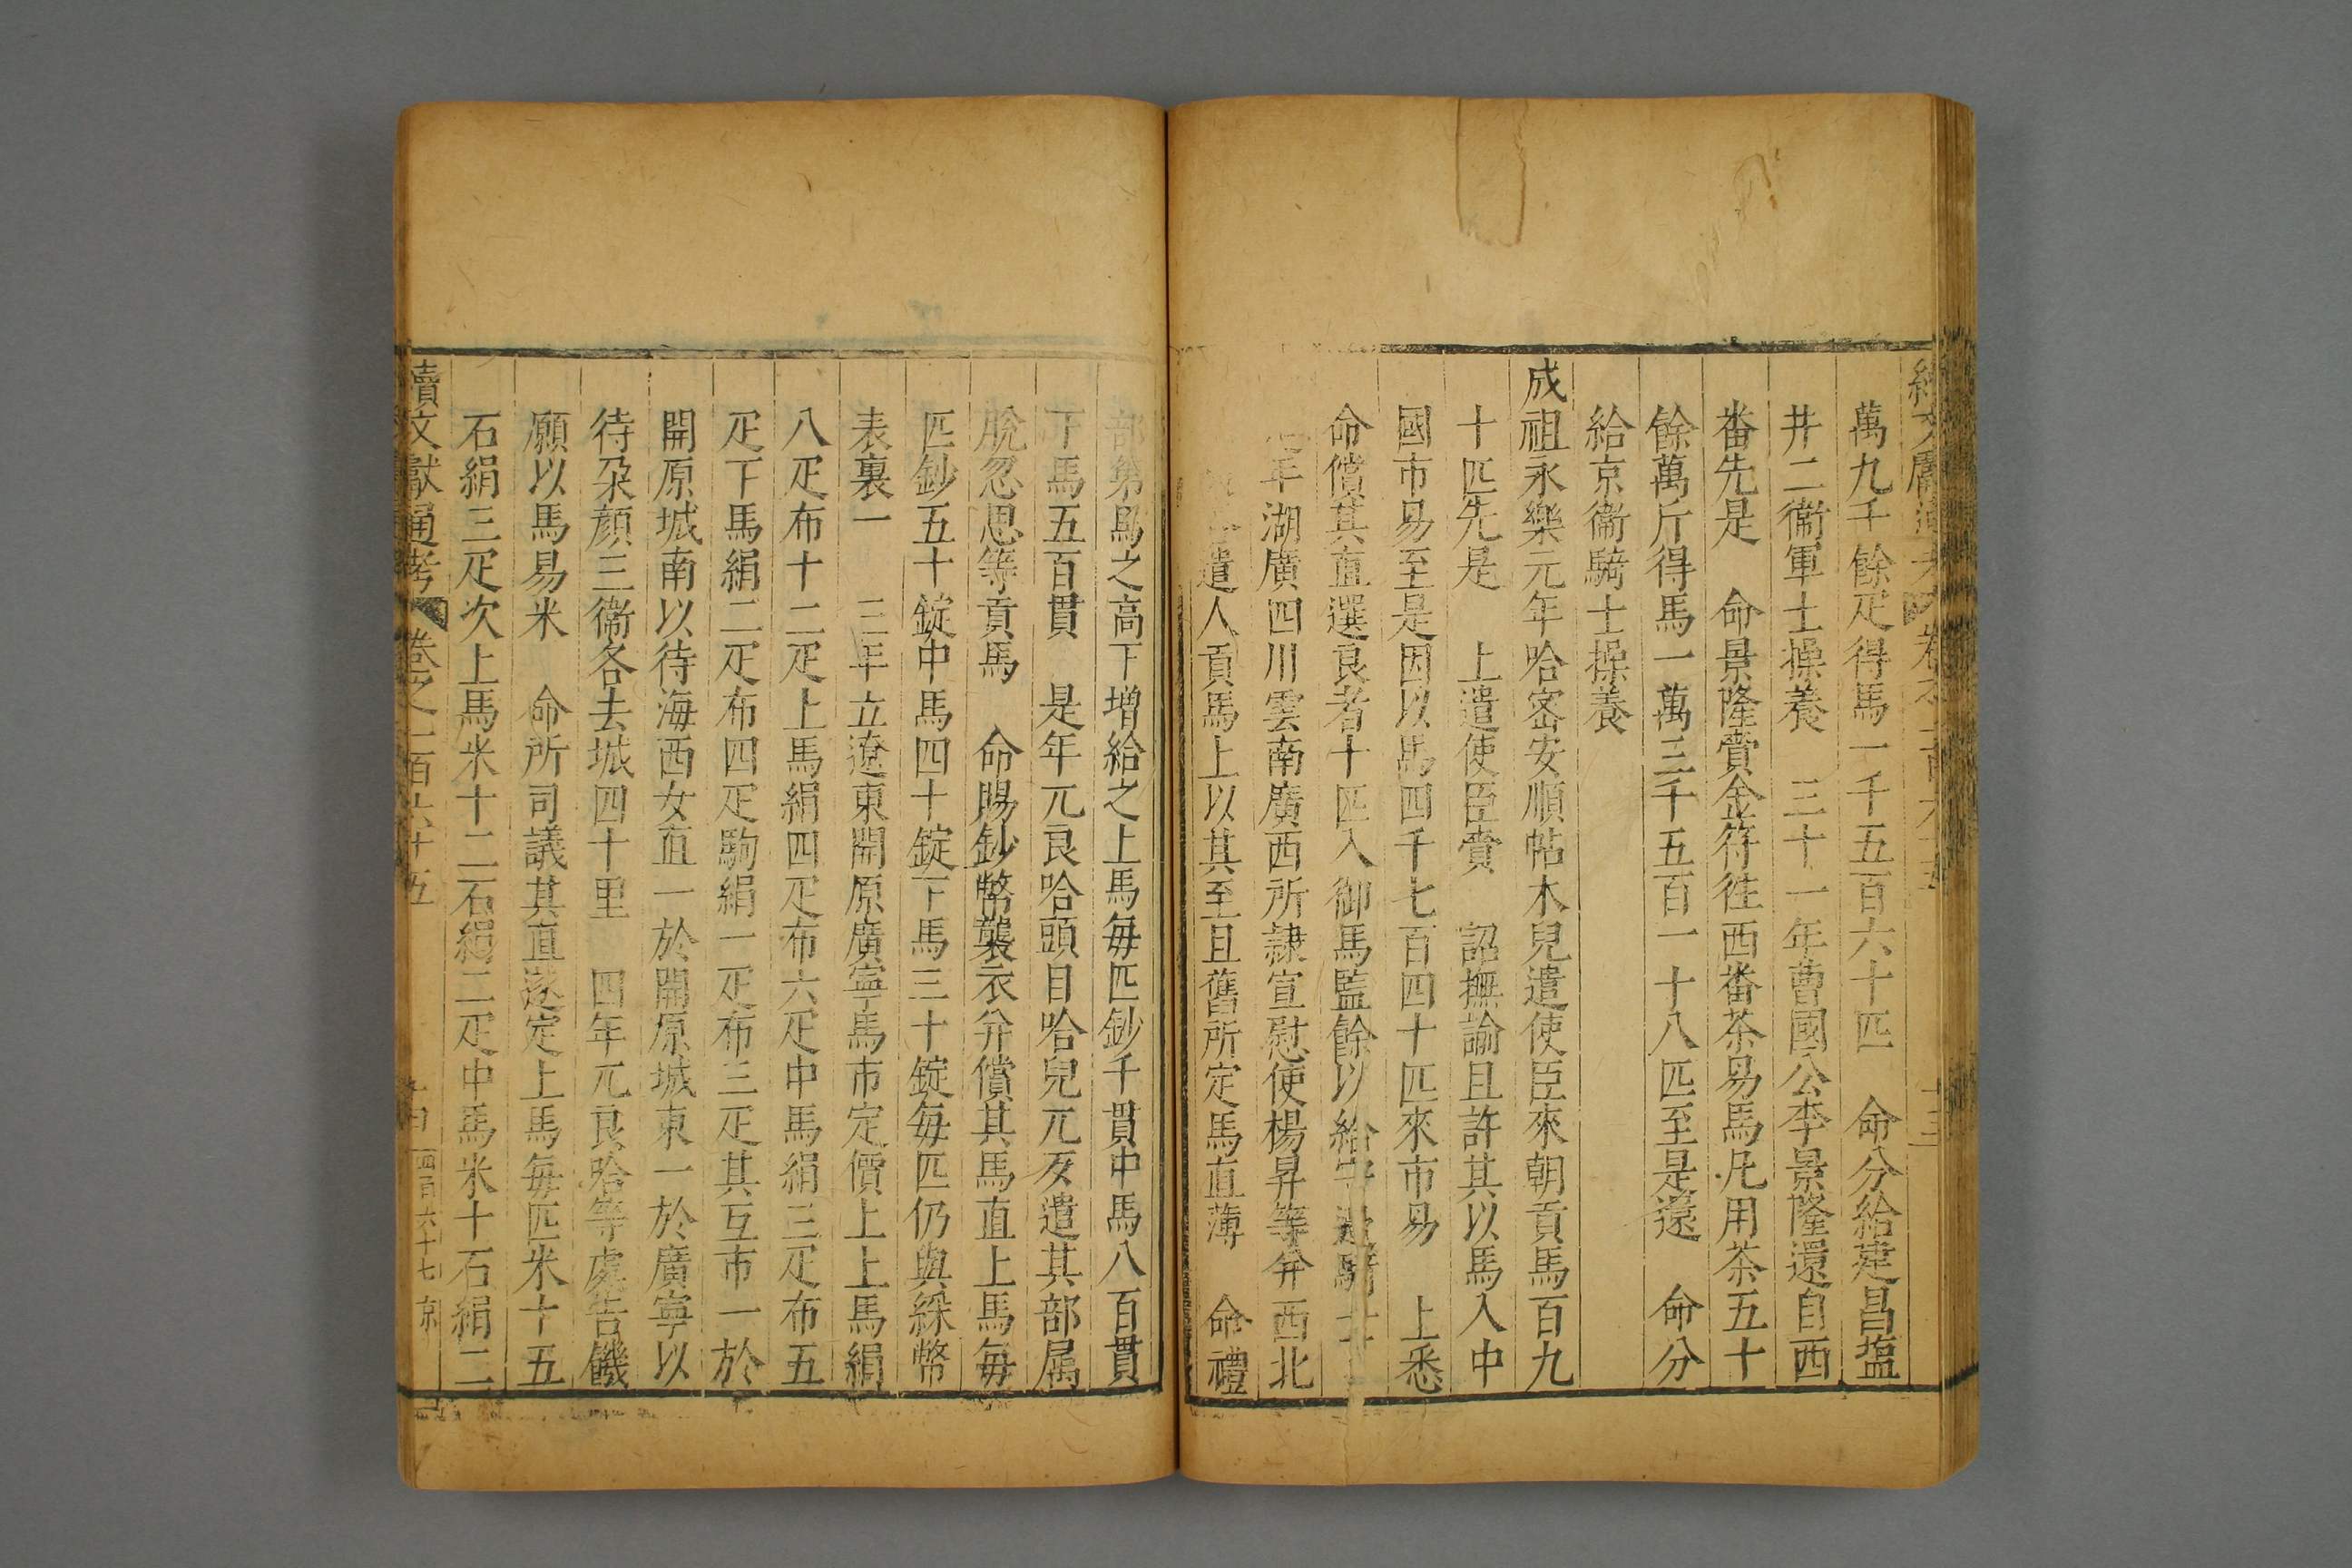 萬九千餘疋得馬一千五百六十匹　命分給建昌塩
井二衞軍士操養　三十一年曹國公李景隆還自西
番先是　命景隆賫金符徃西番茶易馬凡用茶五十
餘萬斤得馬一萬三千五百一十八匹至是還　命分
給京衞騎士操養
成祖永樂元年哈密安順帖木兒遣使臣來朝貢馬百九
十匹先是　上遣使臣賫　詔撫諭且許其以馬入中
國市易至是因以馬四千七百四十匹來市易　上悉
命償其直選良者十匹入御馬監餘以給守邊騎士
年湖廣四川雲南廣西所隷宣慰使楊昇等并西北
遣人貢馬上以其至且舊所定馬直薄　命禮
部第馬之高下增給之上馬毎匹鈔千貫中馬八百貫
下馬五百貫　是年兀良哈頭目哈兒兀歹遣其部属
脫忽思等貢馬　命賜鈔幣襲衣并償其馬直上馬毎
匹鈔五十錠中馬四十錠下馬三十錠毎匹仍與綵幣
表裏一　三年立遼東開原廣寧馬市定價上上馬絹
八疋布十二疋上馬絹四疋布六疋中馬絹三疋布五
疋下馬絹二疋布四疋駒絹一疋布三疋其互市一於
開原城南以待海西女直一於開原城東一於廣寧以
待朶顔三衞各去城四十里　四年兀良哈等處告饑
願以馬易米　命所司議其直遂定上馬毎匹米十五
石絹三疋次上馬米十二石絹二疋中馬米十石絹二
續文獻通考　卷之二百六十五　四百六十七　京